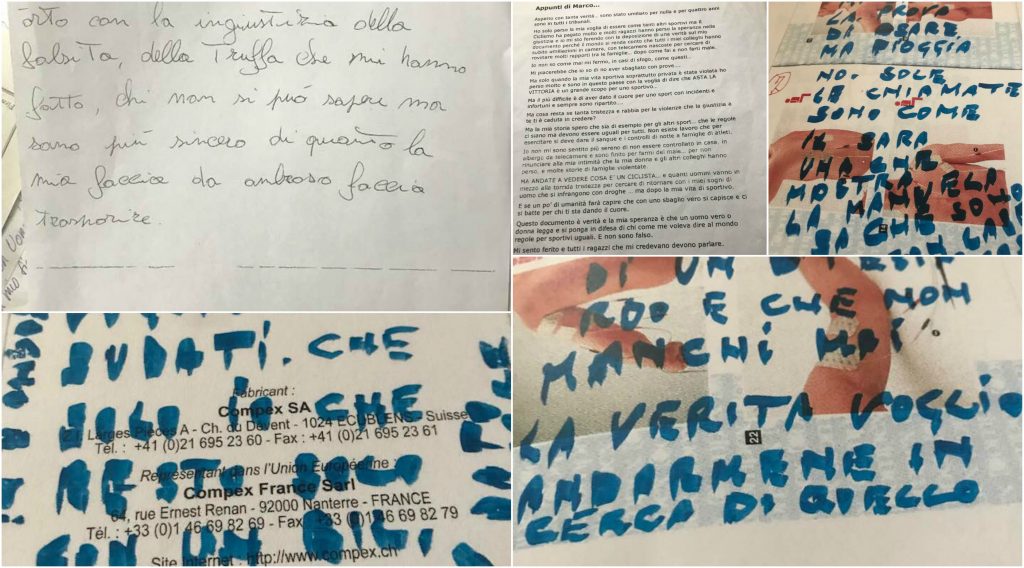 orto con la ingiustizia della
falsità, della Truffa che mi hanno
fatto, chi non si può sapere ma
sono più sincero di quanto la
mia faccia da
faccia
trasparire.
Appunti di Marco...
Aspetto con tanta verità.. sono stato umiliato per nulla e per quattro anni
sono in tutti i tribunali.
Ho solo perso la mia voglia di essere come tanti altri sportivi ma il
Ciclismo ha pagato molto e molti ragazzi hanno perso la speranza nella
giustizia e io mi sto ferendo con la deposizione di una verità sul mio
documento perché il mondo si renda conto che tutti i miei colleghi hanno
subito umiliazioni in camere, con telecamere nascoste per cercare di
rovinare molti rapporti tra le famiglie.. dopo come fai a non farti male.
Io non so come mai mi fermo, in casi di sfogo, come questi..
Mi piacerebbe che io so di no aver sbagliato con prove...
Ma solo quando la mia vita sportiva soprattutto privata è stata violata ho
perso molto e sono in questo paese con la voglia di dire che ASTA LA
VITTORIA è un grande scopo per uno sportivo...
Ma il più difficile è di aver dato il cuore per uno sport con incidenti e
infortuni e sempre sono ripartito...
Ma cosa resta se tanta tristezza e rabbia per le violenze che la giustizia a
te ti è caduta in credere?
Ma la mia storia spero che sia di esempio per gli altri sport... che le regole
ci siano ma devono essere uguali per tutti. Non esiste lavoro che per
esercitare si deve dare il sangue e i controlli di notte a famiglie di atleti.
Io non mi sono sentito più sereno di non essere controllato in casa, in
albergo da telecamere e sono finito per farmi del male... per non
rinunciare alla mia intimità che la mia donna e gli altri colleghi hanno
perso, e molte storie di famiglie violentate.
MA ANDATE A VEDERE COSA E' UN CICLISTA... e quanti uomini vanno in
mezzo alla torrida tristezza per cercare di ritornare con i miei sogni di
uomo che si infrangono con droghe ... ma dopo la mia vita di sportivo.
E se un po' di umanità farà capire che con uno sbaglio vero si capisce e ci
si batte per chi ti sta dando il cuore.
Questo documento è verità e la mia speranza è che un uomo vero o
donna legga e si ponga in difesa di chi come me voleva dire al mondo
regole per sportivi uguali. E non sono falso.
Mi sento ferito e tutti i ragazzi che mi credevano devono parlare.
LA PROVO
DI OSARE
MA PIOGGIA
NO. SOLE
LE CHIAMATE
SONO COME
IL SARA
UNA CHE
MOSTRA VELA
LA MANUEL SOTTO
SUDATI. CHE
Fabricant :
Compex SA
SOLO IO CHE
Z.I. Larges Pièces A - Ch. du Devent - 1024 ECUBLENS - Suisse
Tél. : +41 (0)21 695 23 60 - Fax : +41 (0)21 695 23 61
Représentant dans l'Union Européenne :
RESTO SOLO
Compex France Sarl
64, rue Ernest Renan - 92000 Nanterre - FRANCE
Tél. : +33 (0)1 46 69 82 69 - Fax : +33 (0)1 46 69 82 79
CON UN
Site Internet : http://www.compex.ch
DI UN
RDO E CHE NON
MANCHI MAI
LA VERITA VOGLIO
22
ANDARMENE IN
CERCA DI QUELLO